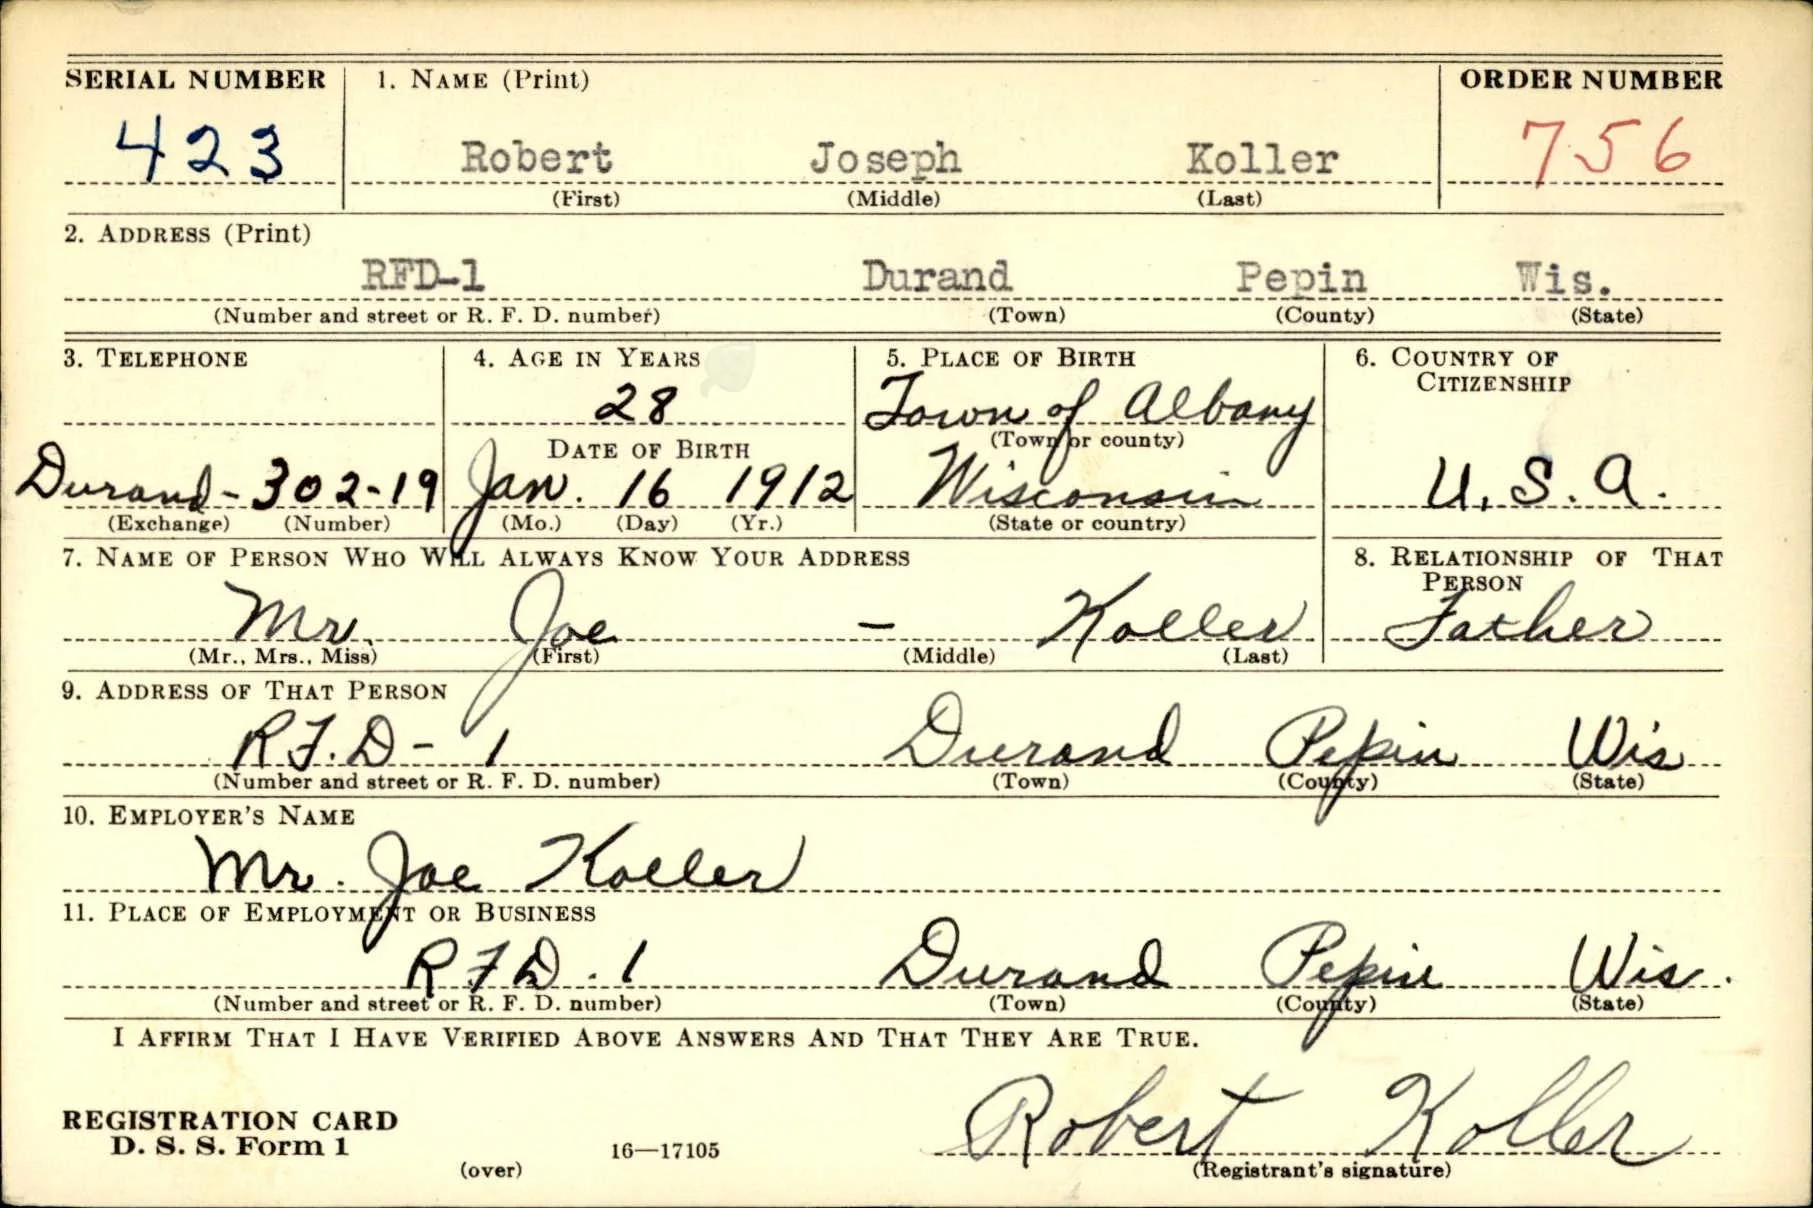 SERIAL NUMBER 1. NAME (Print) ORDER NUMBER
423 Robert Joseph Koller 756
(First) (Middle) (Last)
2. ADDRESS (Print)
RFD-1 Durand Pepin Wis.
(Number and street or R. F. D. number) (Town) (County) (State)
3. TELEPHONE 4. AGE IN YEARS 5. PLACE OF BIRTH 6. COUNTRY OF
CITIZENSHIP
28 Town of Albany
DATE OF BIRTH (Town or county)
Durand-302-19 Jan. 16 1912 Wisconsin U.S.A.
(Exchange) (Number) (Mo.) (Day) (Yr.) (State or country)
7. NAME OF PERSON WHO WILL ALWAYS KNOW YOUR ADDRESS 8. RELATIONSHIP OF THAT
PERSON
Mr. Joe - Koller Father
(Mr., Mrs., Miss) (First) (Middle) (Last)
9. ADDRESS OF THAT PERSON
R.F.D-1 Durand Pepin Wis
(Number and street or R. F. D. number) (Town) (County) (State)
10. EMPLOYER'S NAME
Mr. Joe Koller
11. PLACE OF EMPLOYMENT OR BUSINESS
RFD.1 Durand Pepin Wis.
(Number and street or R. F. D. number) (Town) (County) (State)
I AFFIRM THAT I HAVE VERIFIED ABOVE ANSWERS AND THAT THEY ARE TRUE.
REGISTRATION CARD Robert Koller
D. S. S. Form 1 16—17105
(over) (Registrant's signature)